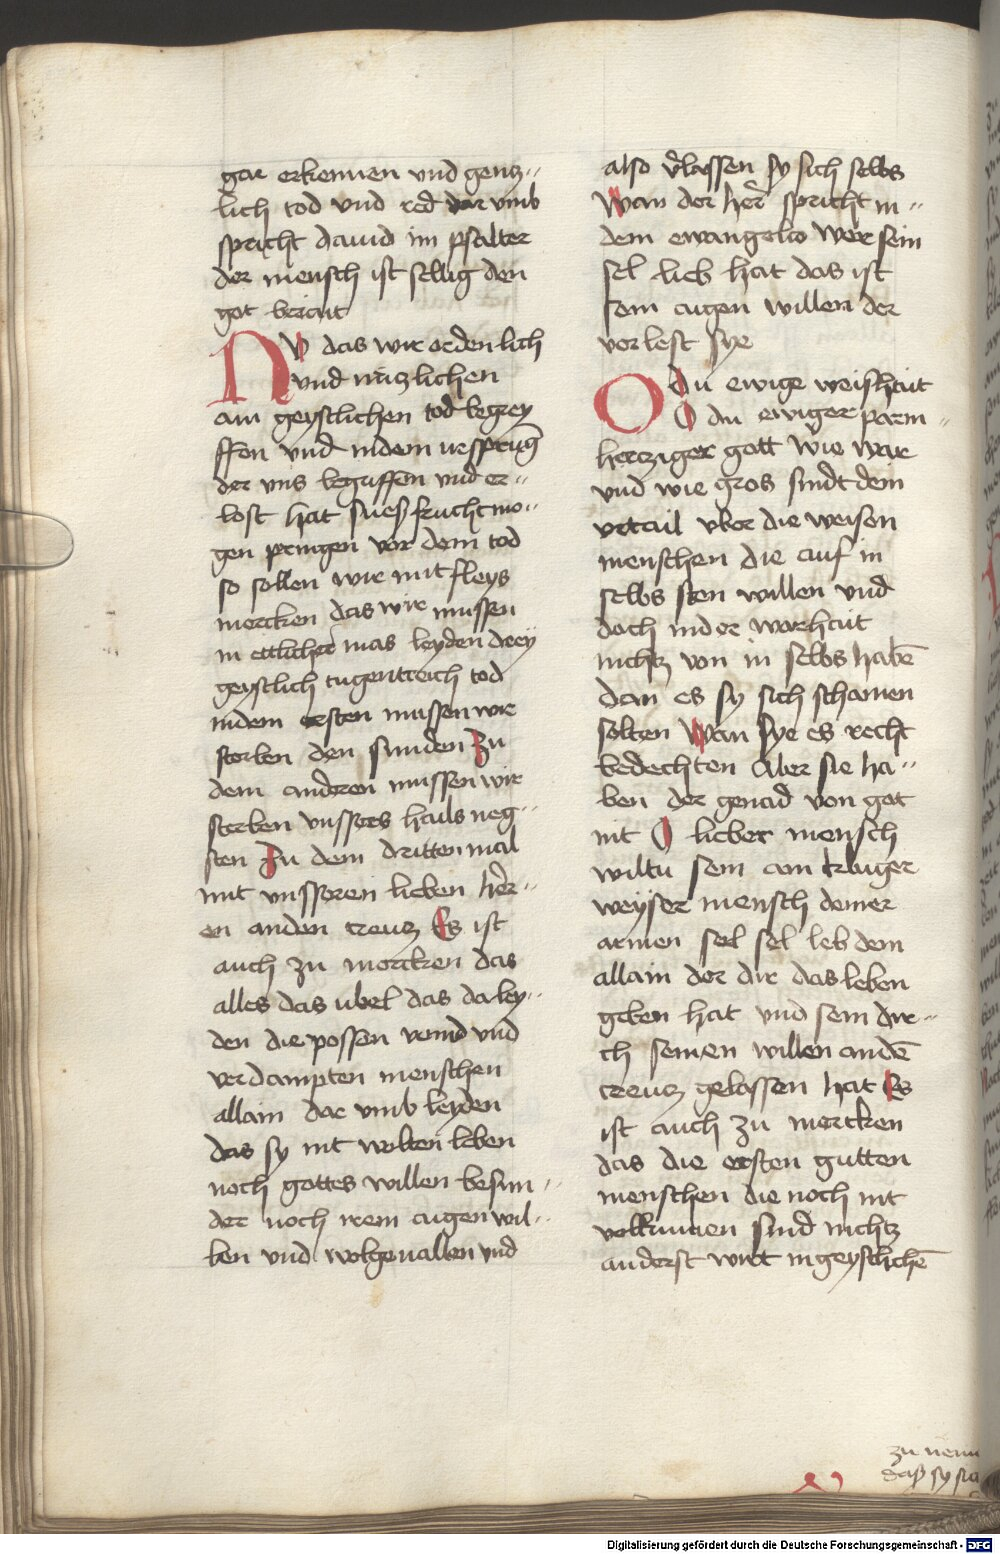 gar erkennen und gentz-
lich tod und red dar umb
spricht dauid im psalter
der mensch ist sellig den
got bericht
NV das wir ordenlich
und nutzlichen
ain geystlichen tod begrey
ffen und in dem ursprug̅
der uns begriffen und er-
lost hat sues frucht mo-
gen pringen vor dem tod
so sollen wir mit fleys
mercken das wir mussen
in ettlicher mas leyden drey
geystlich tugentreich tod
in dem ersten mussen wir
sterben den sunden Zu
dem anderen mussen wir
sterben unssers hails neg-
sten Zu dem dritten mal
mit unsseren lieben her-
en an den creutz Es ist
auch zu mercken das
alles das ubel das da ley-
den die possen und
verdampten menschen
allain dar umb leyden
das sy nit wolten leben
noch gottes willen besun-
der noch irem aigen wil-
len und wolgeuallen und
also v̾lassen sy sich selbs
Wan der her spricht in-
dem ewangelio wer sein
sel lieb hat das ist
sein aigen willen der
verlest sye
O du ewige weishait
O du ewiger parm-
hertziger gott wie war
und wie gros sindt dein
urtail vber die weisen
menschen die auf in
selbs sten willen und
doch in der warhait
nichtz von in selbs habe̅
dan es sy sich schamen
solten Wan sye es recht
bedechten Aber sie ha-
ben der genad von got
nit O lieber mensch
wiltu sein ain kluger
weyser mensch deiner
armen sel sel leb dem
allain der dir das leben
geben hat und sein dur-
ch seinen willen an de̅
creutz gelassen hat Es
ist auch zu mercken
das die ersten gutten
menschen die noch nit
volkumen sind nichtz
anderst wirt in geystliche̅
zu nem
das sy sic
Digitalisierung gefördert durch die Deutsche Forschungsgemeinschaft - DFG